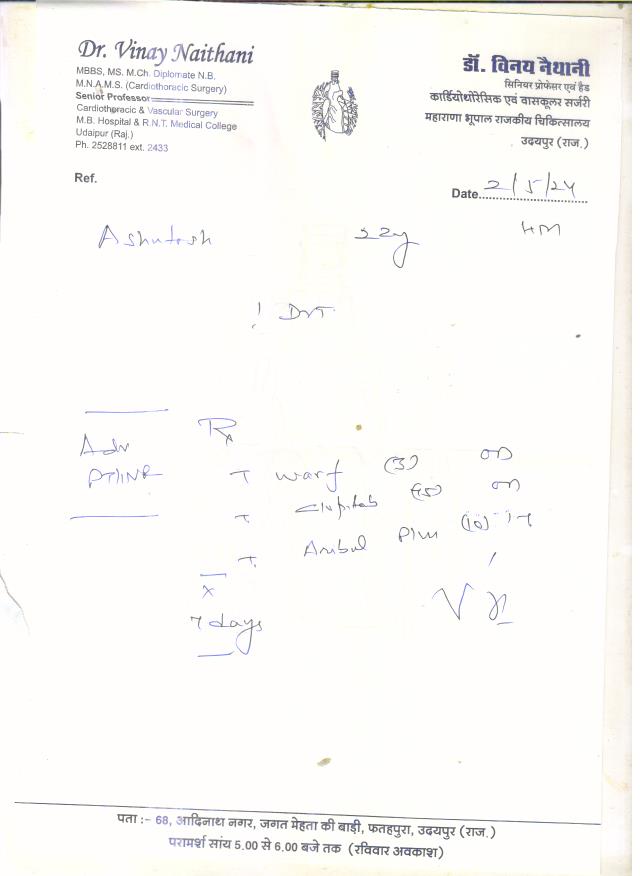 Dr. Vinay Naithani
MBBS, MS. M.Ch. Diplomate N.B.
M.N.A.M.S. (Cardiothoracic Surgery)
Senior Professor
Cardiothoracic & Vascular Surgery
M.B. Hospital & R.N.T. Medical College
Udaipur (Raj.)
Ph. 2528811 ext. 2433
डॉ. विनय नैथानी
सिनियर प्रोफेसर एवं हैड
कार्डियोथोरेसिक एवं वासकूलर सर्जरी
महाराणा भूपाल राजकीय चिकित्सालय
उदयपुर (राज.)
Ref.
Date 2/5/24
Ashutosh 22y
! DVT
Rx
Adv
PT/INR
T warf (3) OD
T
T. Plus (10)
x
7 days
पता :- 68, आदिनाथ नगर, जगत मेहता की बाड़ी, फतहपुरा, उदयपुर (राज.)
परामर्श सांय 5.00 से 6.00 बजे तक (रविवार अवकाश)